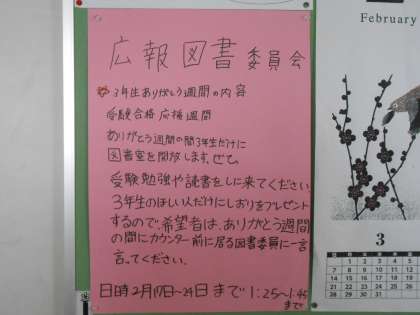 広報図書委員会
3年生ありがとう週間の内容
受験合格応援週間
ありがとう週間の間3年生だけに
図書室を開放します。ぜひ、
受験勉強や読書をしに来てください。
3年生のほしい人だけにしおりをプレゼント
するので、希望者は、ありがとう週間
の間にカウンター前に居る図書委員に一言
言ってください。
日時2月17日~24日まで1:25~1:45
まで
February
3
1 2 3 4 5 6
7 8 9 10 11 12 13
14 15 16 17 18 19 20
21 22 23 24 25 26 27
28 29 30 31